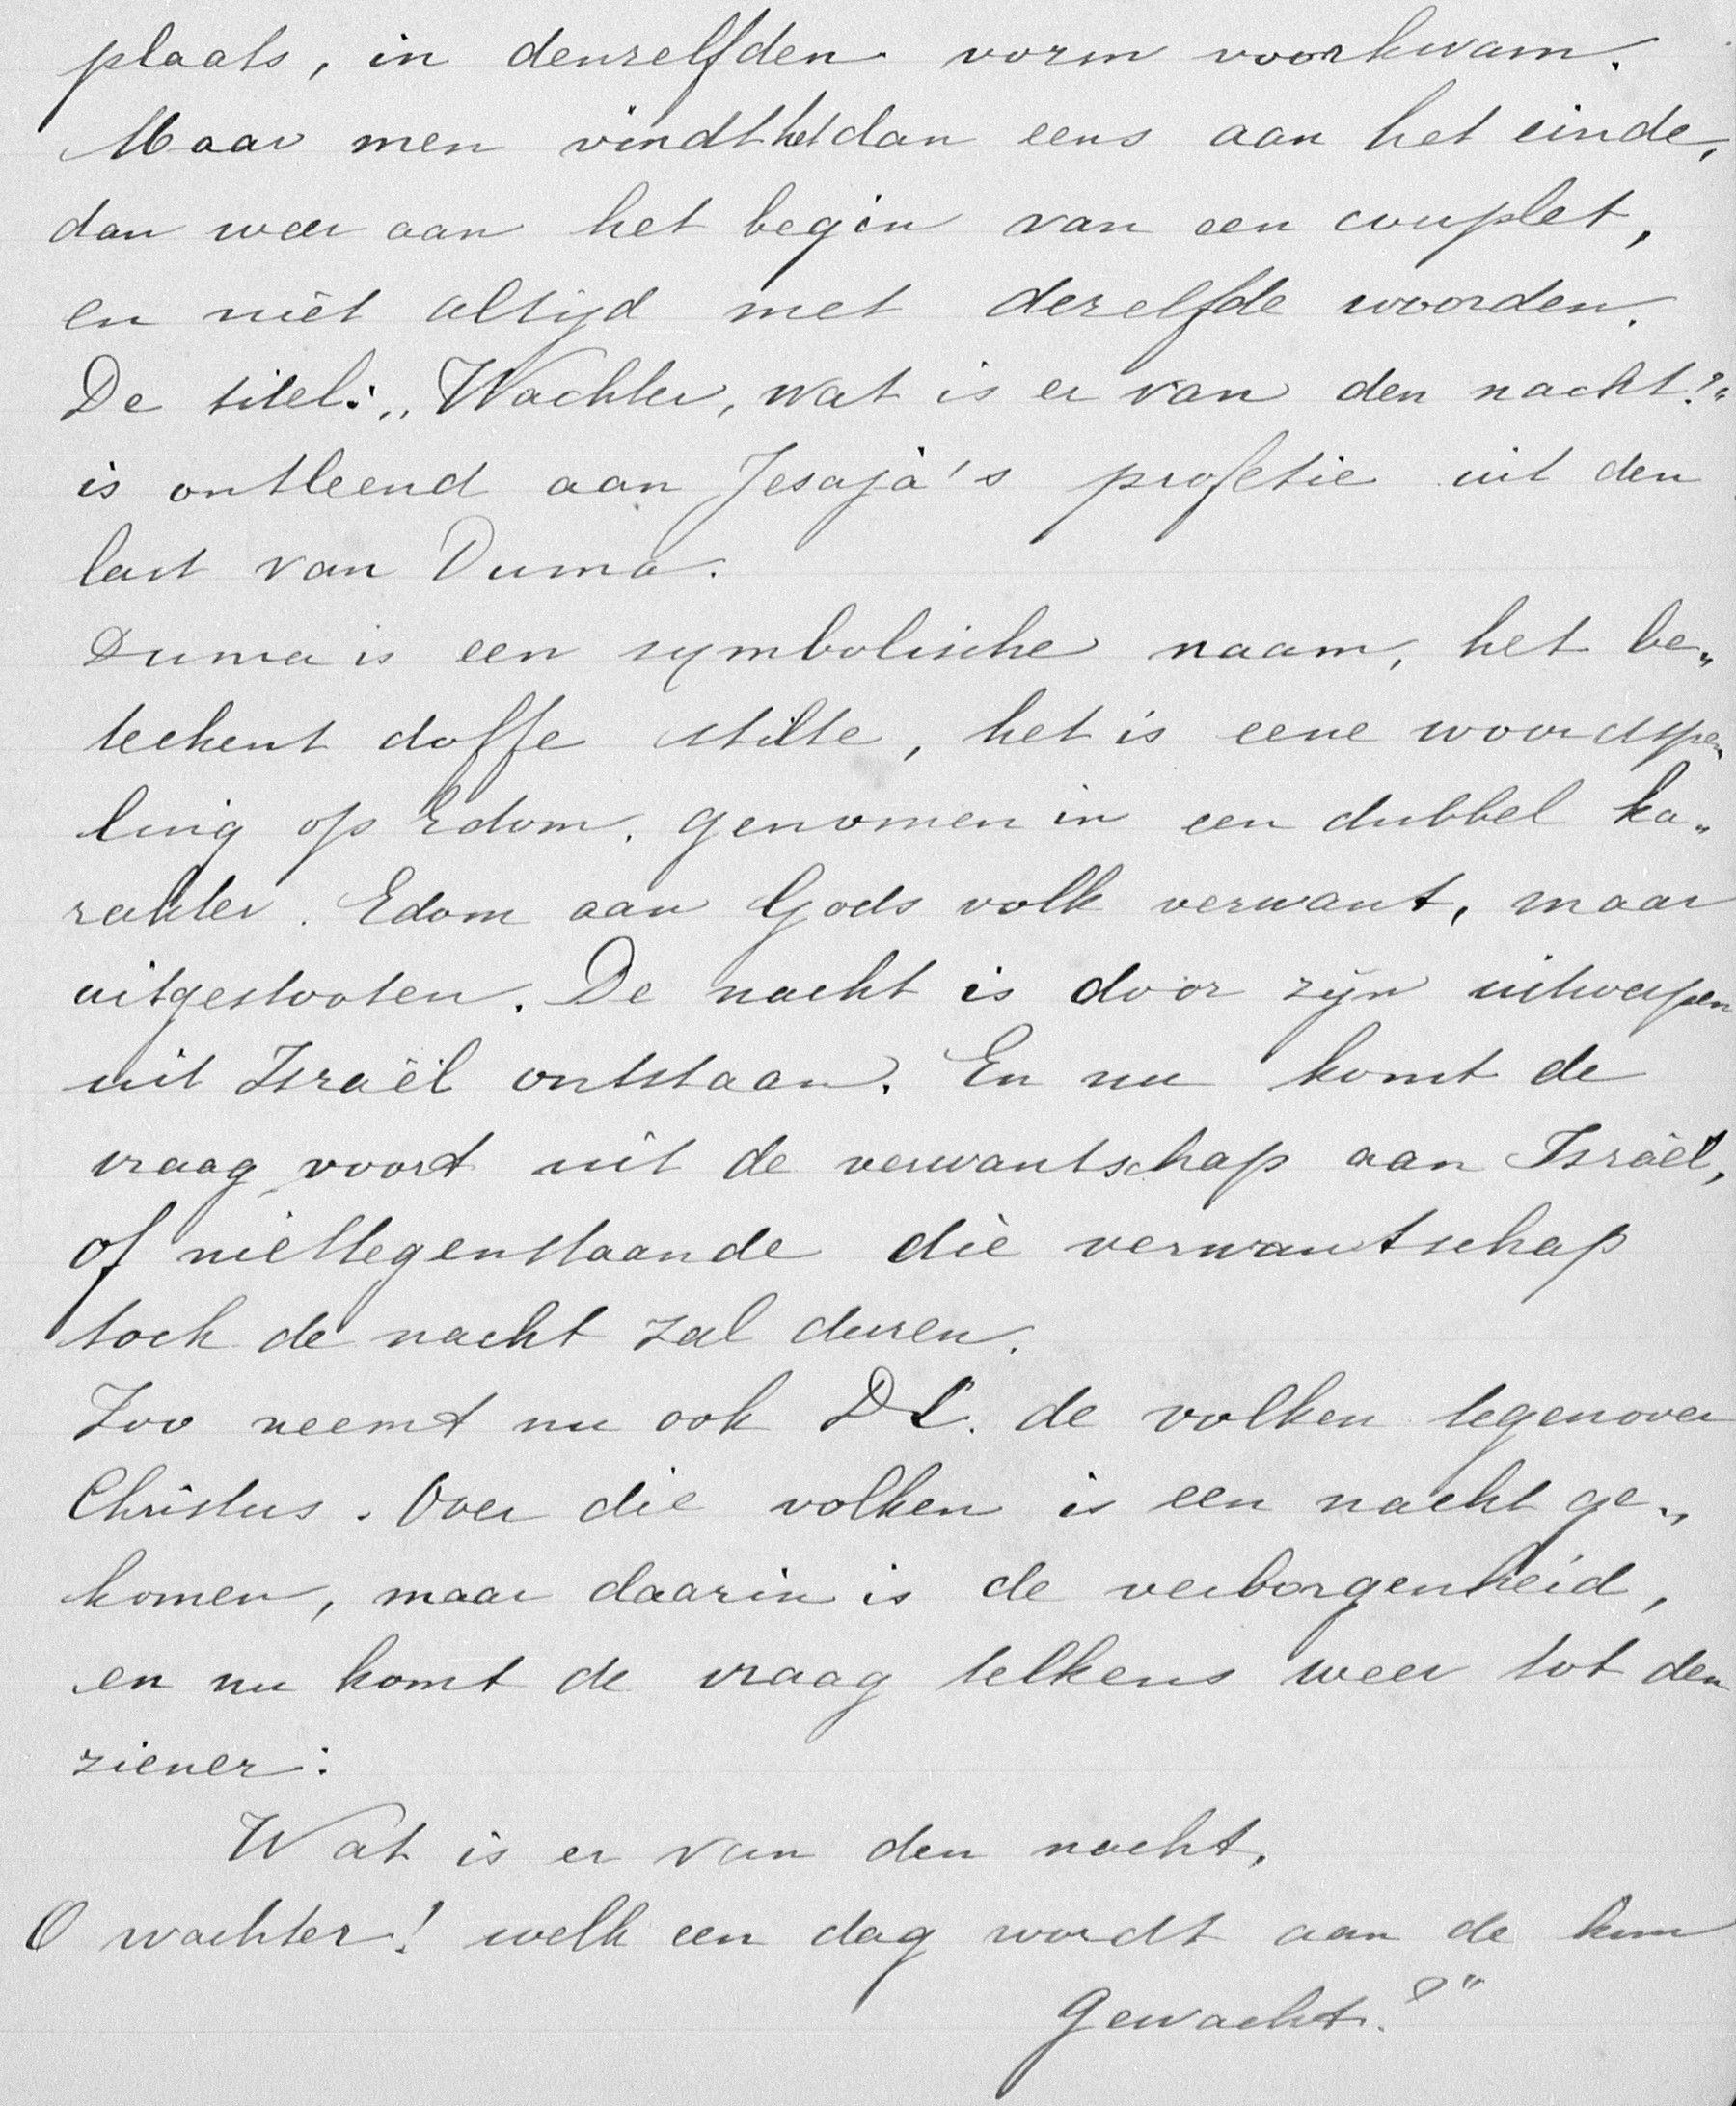 plaats, in denzelfden vorm voorkwam.
Maar men vindt het dan eens aan het einde,
dan weer aan het begin van een couplet,
en niet altijd met dezelfde woorden.
De titel: „Wachter, wat is er van den nacht?"
is ontleend aan Jesaja's profetie uit den
last van Duma.
Duma is een symbolische naam, het be„
teekent doffe stilte, het is eene woordspe„
ling op Edom, genomen in een dubbel ka„
rakter. Edom aan Gods volk verwant, maar
uitgestooten. De nacht is door zijn uitwerpen
uit Israël ontstaan. En nu komt de
vraag voort uit de verwantschap aan Israël,
of niettegenstaande die verwantschap
toch de nacht zal duren.
Zoo neemt nu ook DC. de volken tegenover
Christus. Over die volken is een nacht ge„
komen, maar daarin is de verborgenheid,
en nu komt de vraag telkens weer tot den
ziener:
Wat is er van den nacht,
O wachter! welk een dag wordt aan de kim
gewacht?"